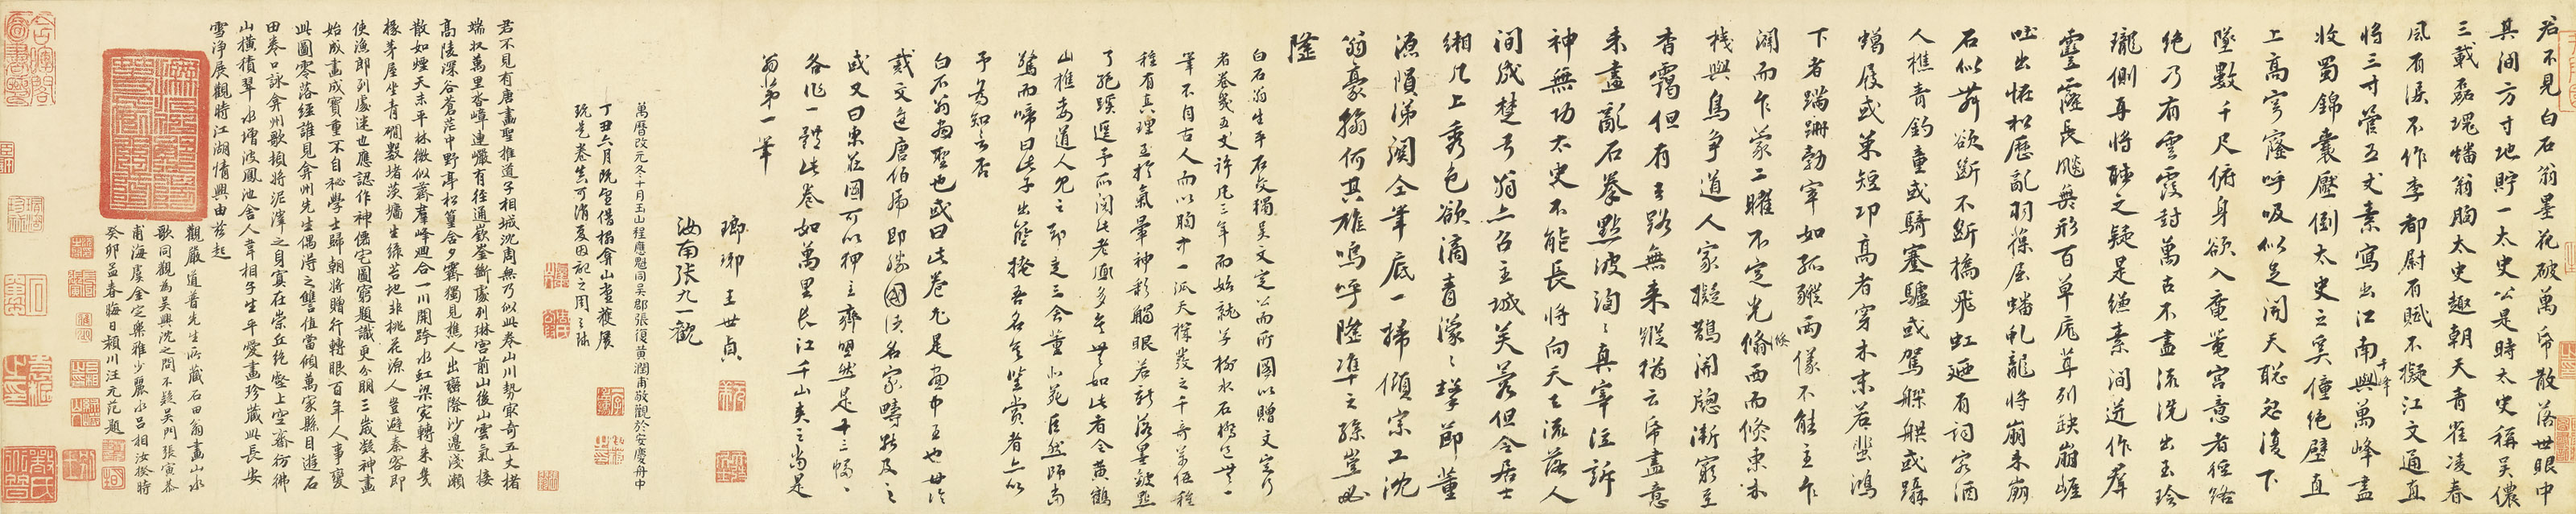 君不見白石翁墨花破萬帋散落世眼中
其間方寸地貯一太史公是時太史稱吳儂
三載磊塊蟠翁胸太史趣朝天青雀凌春
風有淚不作李都尉有賦不擬江文通直
將三寸管五丈素寫出江南千峰與萬峰盡
收蜀錦囊壓倒太史之奚僮絕壁直
上高穹窿呼吸似足開天聰忽復下
墜數千尺俯身欲入黿鼉宮意者徑路
絕乃有雲霞封萬古不盡流洗出玉玲
瓏側耳將聽之疑是縑素間迸作羣
靈靈長颷無形百草庬茸列缺崩崕
吐出怪松歷亂羽葆屈蟠虬龍將崩未崩
石似群欲斷不斷橋飛虹廼有詞客酒
人樵青釣童或騎蹇驢或駕舴艋或躡
蠟屐或策短邛高者穿木末若蜚鴻
下者蹣跚勃窣如孤豵兩儀不能主乍
闢而乍蒙二曜不定光倏西而倏東木
棧與鳥爭道人家擬鵲開窓漸窮至
杳靄但有去路無來蹤猶云帋盡意
未盡亂石拳點波洶洶真宰泣訴
神無功太史不能長將向天上流落人
間成楚弓翁亦召主城芙蓉但令居士
緗几上秀色欲滴青濛濛擊節董
源隕涕關仝筆底一掃傾宗工沈
翁豪翰何其雄嗚呼隆準之孫豈必
隆
白石翁生平石交獨吳文定公而所圖以贈文定行
者卷幾五丈許凡三年而始就予樹水石橋之類一
筆不自古人而以胸中一派天機發之千奇萬怪種
種有真理至於氣暈神彩觸眼若新落墨皴點
了絕蹊逕予所閱此老画多矣無如此者令黃鶴
山樵委道人見之却走三舍董北苑巨然師當
驚而啼曰此子出藍掩吾名矣鑒賞者亦以
予為知言否
白石翁画聖也或曰此卷尤是画中王也世論
戴文進唐伯虎即勝國諸名家疇能及之
或又曰東莊圖可以狎主齊盟然是十三幅
各作一體此卷如萬里長江千山夾之當是
翁第一筆
瑯琊王世貞
汝南張九一觀
萬曆改元冬十月玉山程應魁同吳郡張復黃潤甫敬觀於安慶舟中
丁丑六月既望借搨弇山堂獲展
玩是卷堪可消夏因記之周之
君不見有唐畫聖推道子相城沈周無乃似此卷山川勢最奇五丈楮
端状萬里沓嶂連巖有徑通嶔崟斷處列琳宮前山後山雲氣接
高陵深谷蒼茫中野亭松篁含夕霽獨見樵人出巖際沙邊淺瀨
散如煙天末平林微似薺羣峰廻合一川開跨水虹梁宛轉來幾
椽茅屋坐青磵數堵茨牆生綠苔地非桃花源人豈避秦客即
使漁郎到處迷也應認作神僊宅圖窮題識更分明三歲凝神畫
始成畫成寶重不自秘學士歸朝將贈行轉眼百年人事變
此圖零落經誰見弇州先生偶得之讐值當傾萬家縣目遊石
田卷口詠弇州歌頓將泥滓之身寘在崇丘絕壑上空齋彷彿
山橫積翠水增波鳳池舍人韋相子生平愛畫珍藏此長安
雪淨展觀時江湖情興由茲起
觀嚴道普先生所藏石田翁畫山水
歌同觀為吳興沈之問不疑吳門張寅恭
甫海虞金定樂雅少麗水呂相汝揆時
癸卯孟春晦日潁川汪元范題